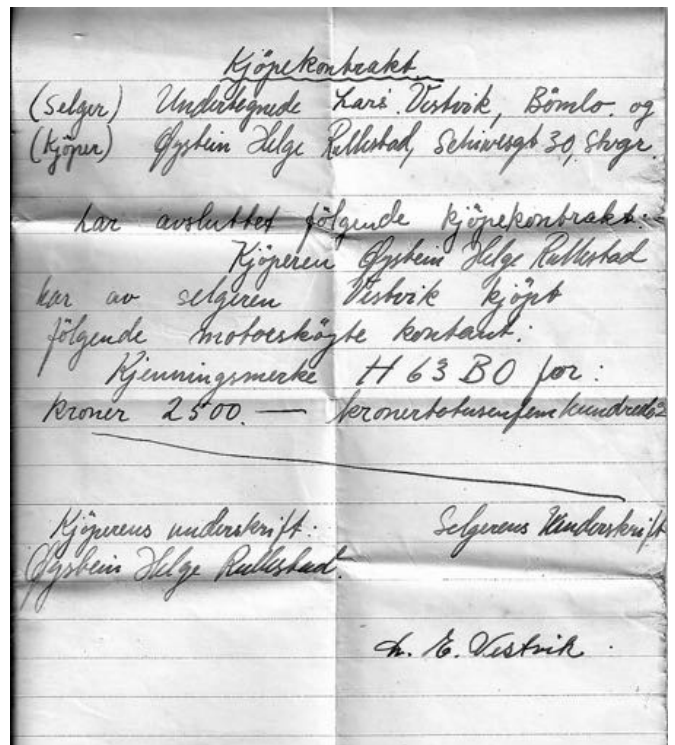 Kjöpekontrakt.
(Selger) Undertegnede Lars Vestvik, Bömlo. og
(Kjöper) Øystein Helge Rullestad, Schiwesgt 30, Stvgr.
har avsluttet fölgende kjöpekontrakt:-
Kjöperen Øystein Helge Rullestad
har av selgeren Vestvik kjöpt
fölgende motorsköyte kontant:
Kjenningsmerke H 63 BO for:
Kroner 2500.— kronertotusenfemhundrede
Kjöperens underskrift: Selgerens Underskrift
Øystein Helge Rullestad.
L. E. Vestvik.